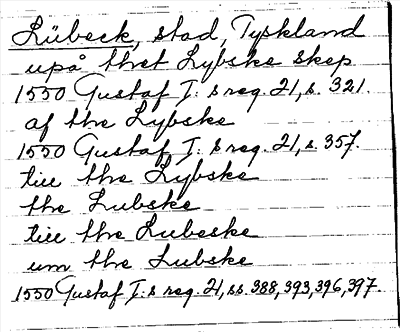 Lübeck, stad, Tyskland
upå thet Lybske skep
1550 Gustaf I:s reg. 21, s. 321.
af the Lybske
1550 Gustaf I:s reg. 21, s. 357.
till the Lybske
the Lubske
till the Lubeske
um the Lubske
1550 Gustaf I:s reg. 21, ss. 388, 393, 396, 397.